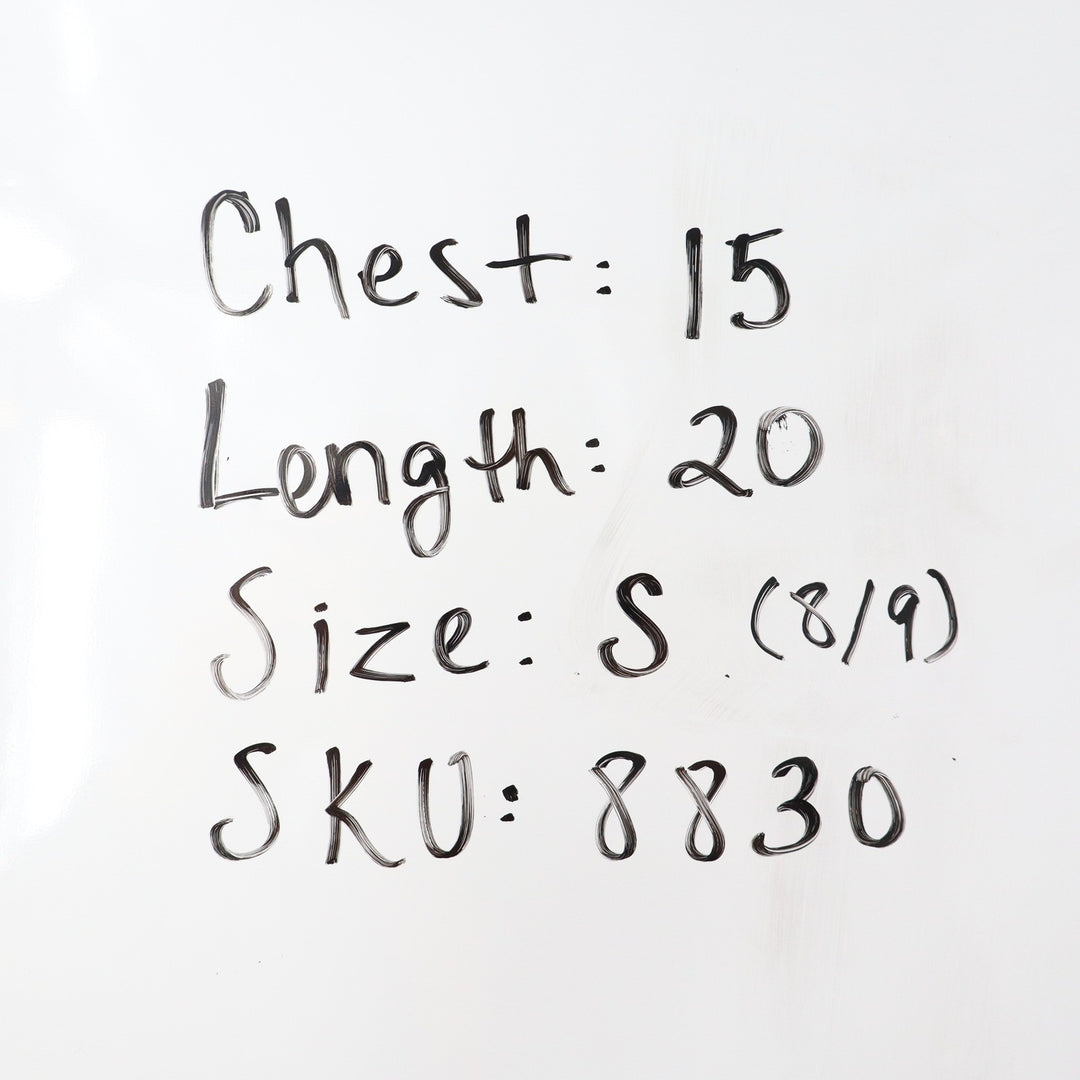 Chest: 15
Length: 20
Size: S (8/9)
SKU: 8830